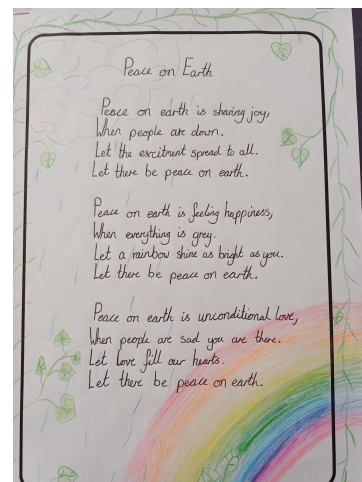 Peace on Earth
Peace on earth is sharing joy,
When people are down.
Let the excitment spread to all.
Let there be peace on earth.
Peace on earth is feeling happiness,
When everything is grey.
Let a rainbow shine as bright as you.
Let there be peace on earth.
Peace on earth is unconditional love,
When people are sad you are there.
Let love fill our hearts.
Let there be peace on earth.